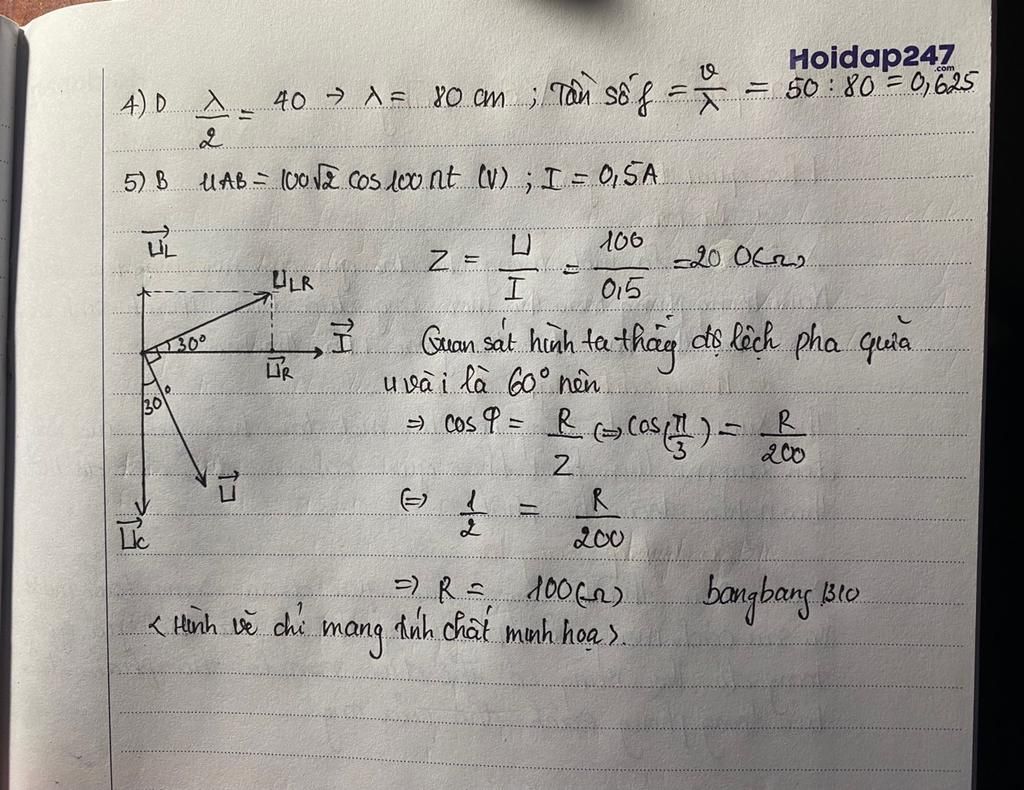 Hoidap247
.com
4) D λ/2 = 40 → λ = 80 cm ; Tần số f = v/λ = 50 : 80 = 0,625
5) B UAB = 100√2 cos 100πt (V) ; I = 0,5A
U⃗L
Z = U/I = 100/0,5 = 200(Ω)
ULR
30° I⃗
U⃗R
Quan sát hình ta thấy độ lệch pha giữa
u và i là 60° nên
30°
⇒ cos φ = R/Z ⇔ cos(π/3) = R/200
U⃗
⇔ 1/2 = R/200
U⃗C
⇒ R = 100(Ω) bangbang1310
< Hình vẽ chỉ mang tính chất minh hoạ >.